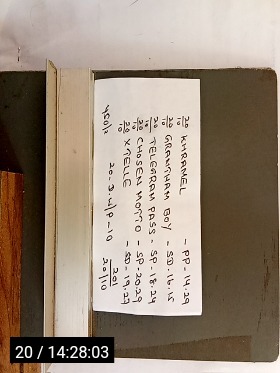 20/10 KHRAMEL - PP - 14.29
20/10 GRANTHAM BOY - SD.16.15
20/10 TELEGRAM PASS - SP.18.24
20/10 CHOSEN MOTTO - SP.20.29
20/10 XTELLE - SD - 19.27
201
20/10
20 / 14:28:03